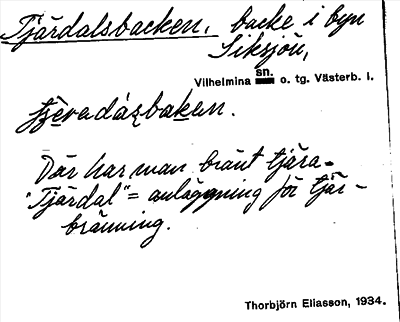 Tjärdalsbacken, backe i byn
Siksjön,
Vilhelmina sn. o. tg. Västerb. l.
Där har man bränt tjära.
"Tjärdal" = anläggning för tjär-
bränning.
Thorbjörn Eliasson, 1934.